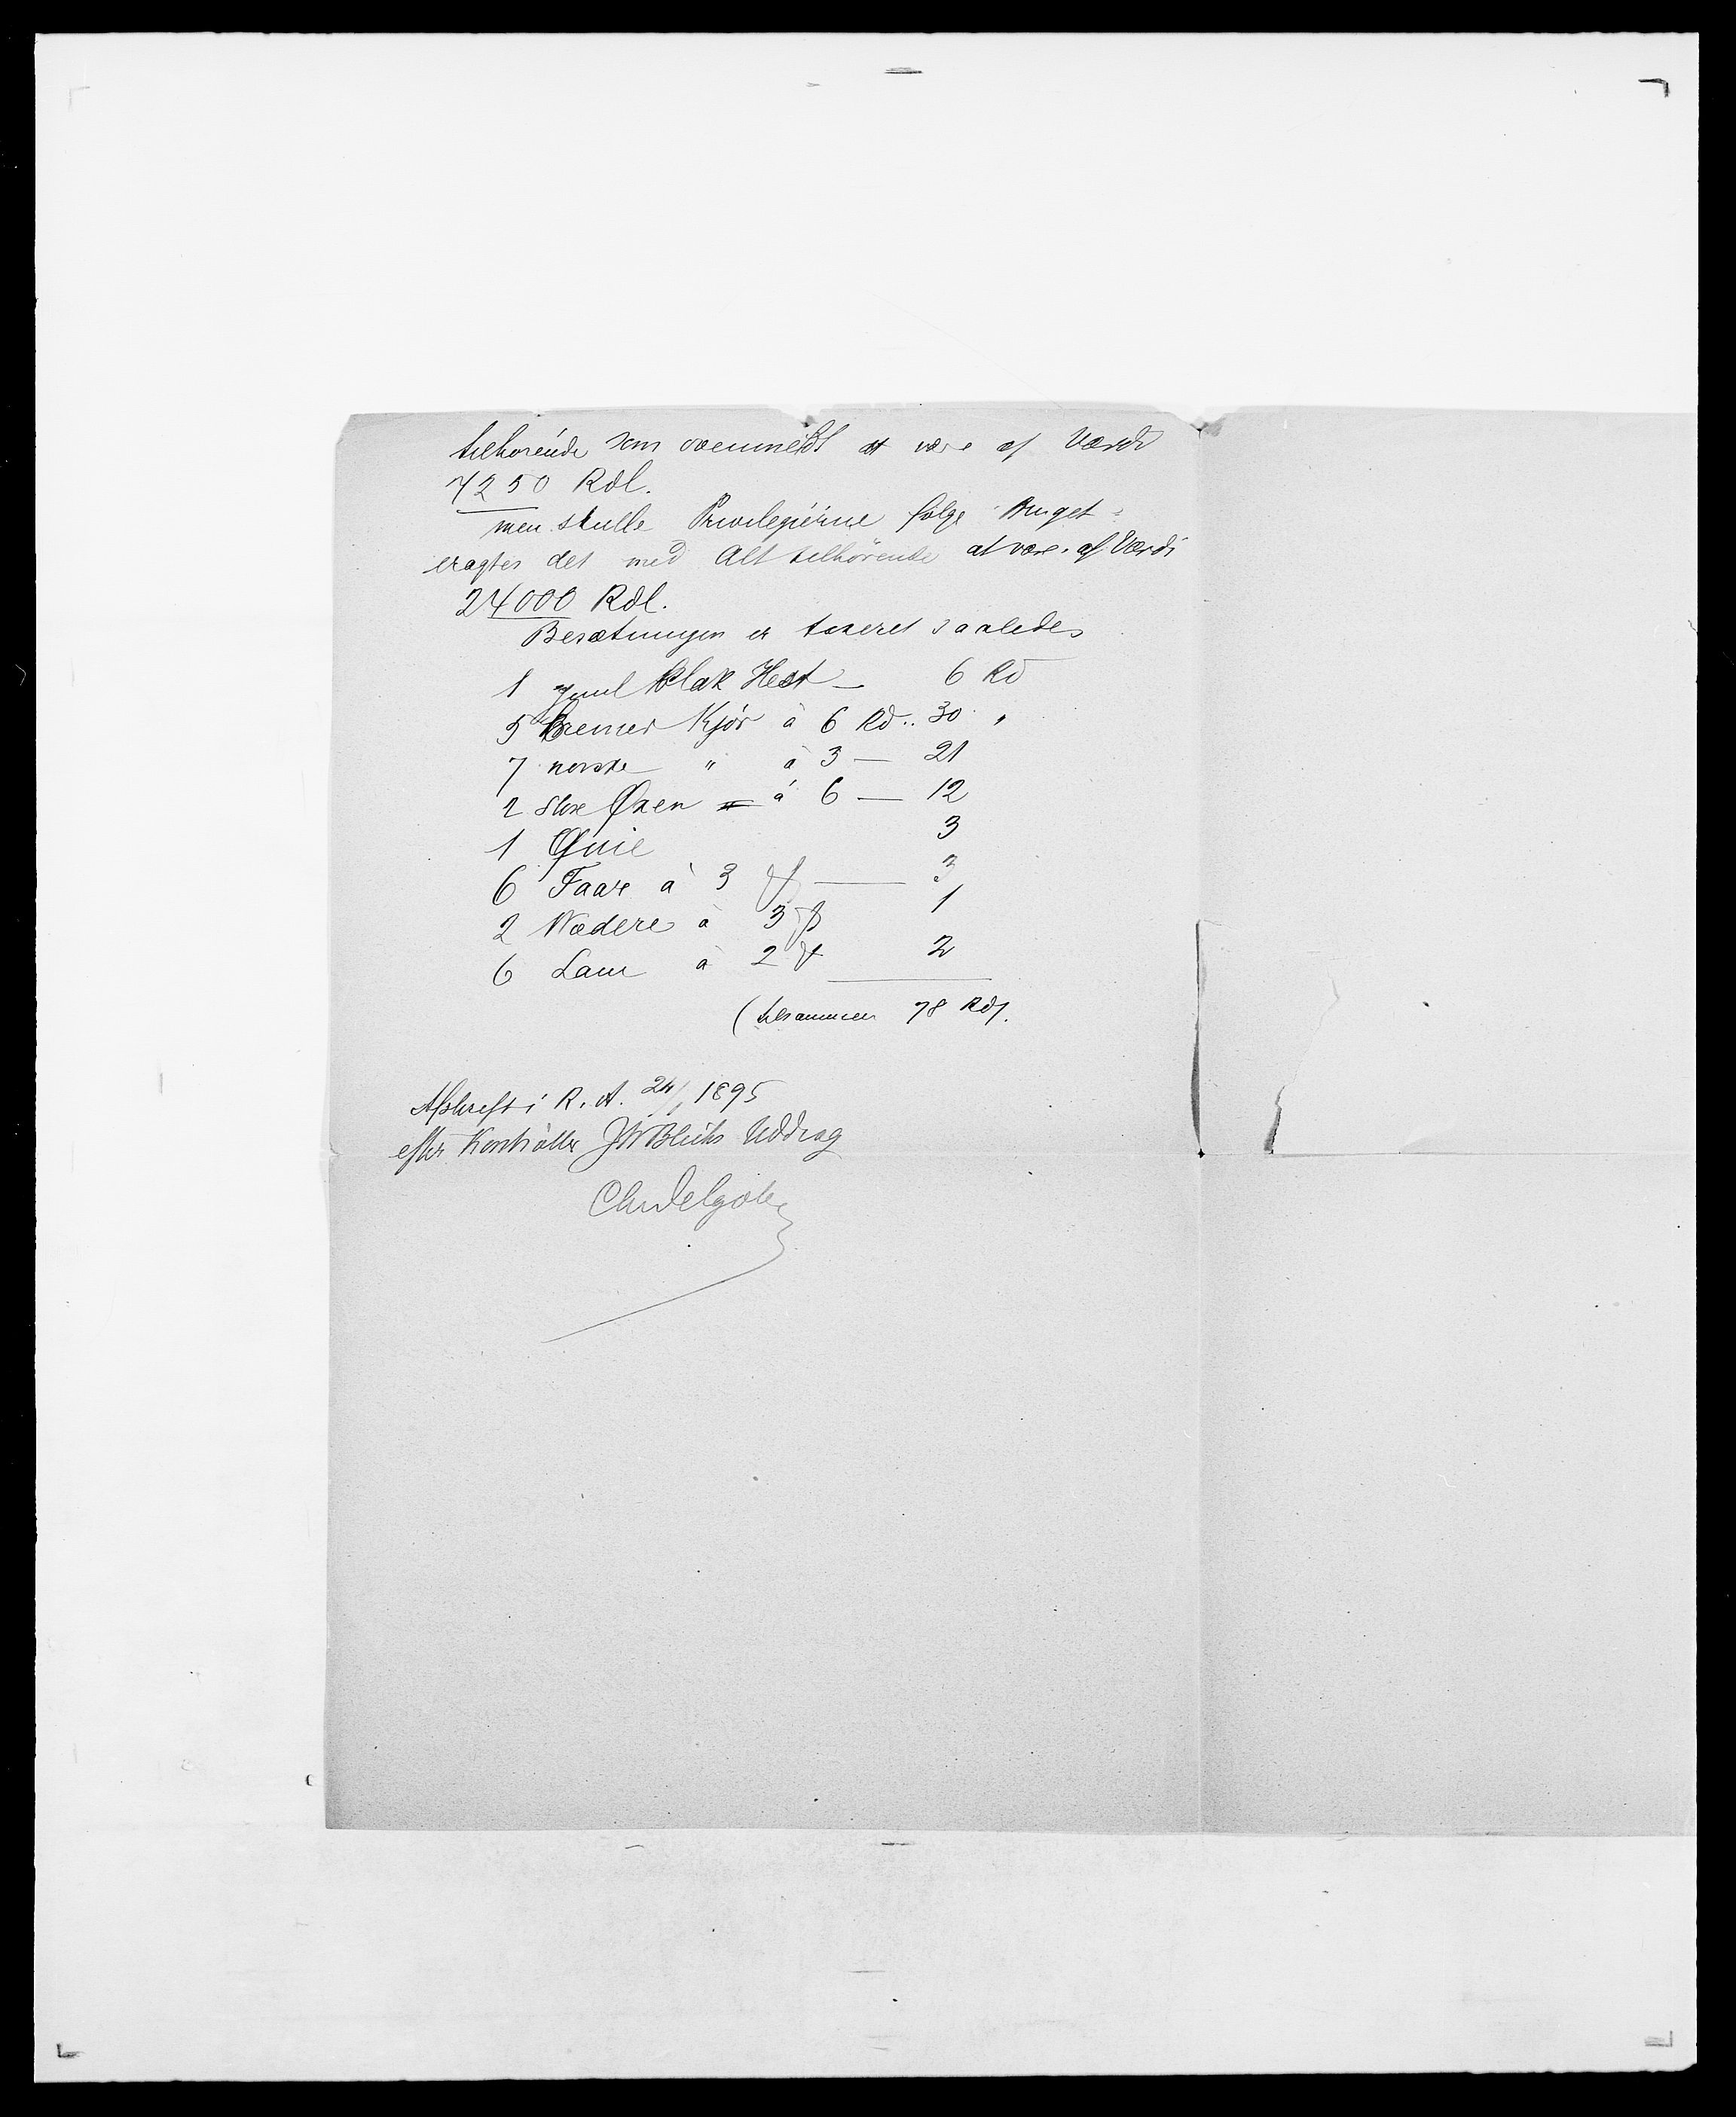 tilhørende som ovenmeldt at være af Værdi
7250 Rdl.
men skulle Privilegierne følge Bruget
eragtes det med Alt tilhørende at være af Værdi
24000 Rdl.
Besætningen er taxeret saaledes
1 guul blak Hest — 6 Rd
5 Bremer Kjør à 6 Rd.. 30 "
7 norske " à 3 — 21
2 store Øxen à 6 — 12
1 Qvie 3
6 Faar à 3 — 3
2 Vædere à 3 1
6 Lam à 2 2
(tilsammen 78 Rd).
Afskrift i R. A. 24/1 1895
efter Kontrollør Blichs Uddrag
Chr Delgobe